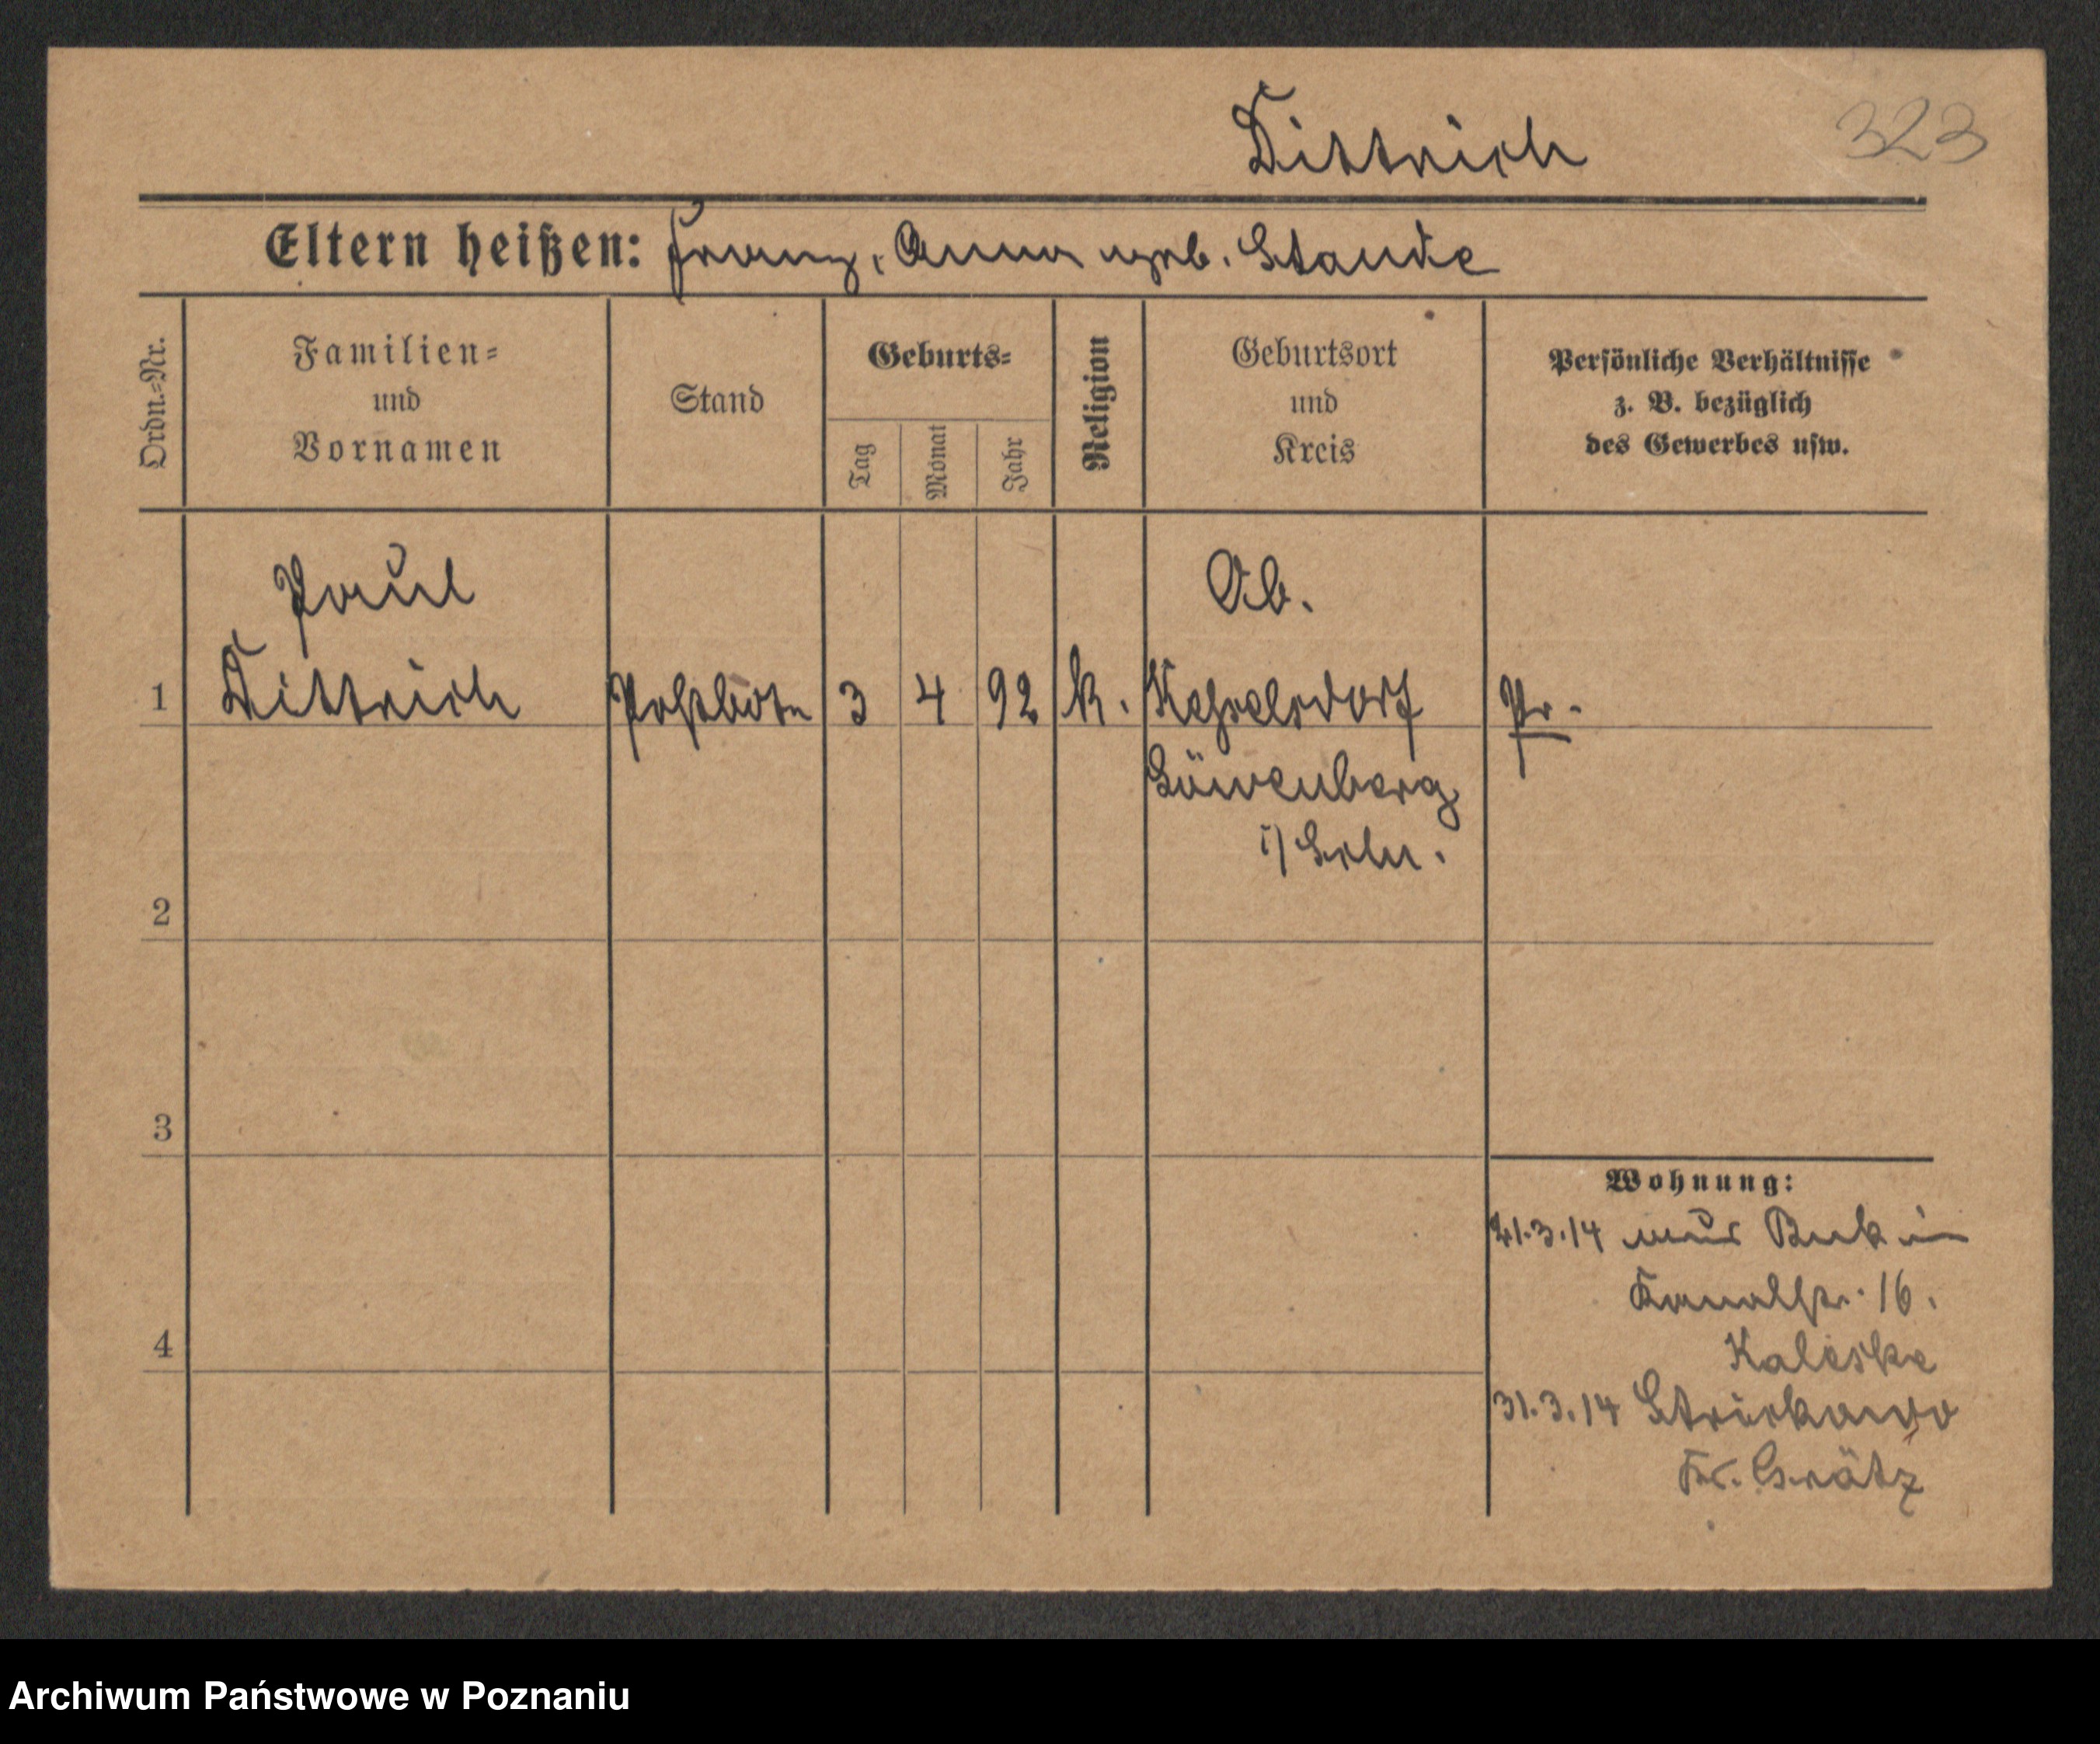 Dittrich 323
Eltern heißen: Franz, Anna geb. Staude
Ordn.=Nr.
Familien=
und
Vornamen
Stand
Geburts=
Tag
Monat
Jahr
Religion
Geburtsort
und
Kreis
Persönliche Verhältnisse
z. B. bezüglich
des Gewerbes usw.
Paul
Ob.
1 Dittrich Postbote 3 4 92 k. Kesselsdorf Pr.
Löwenberg
i/Schl.
2
3
4
Wohnung:
21.3.14 aus Buk in
Kanalstr. 16.
Kaliske
31.3.14
Kr. Grätz
Archiwum Państwowe w Poznaniu